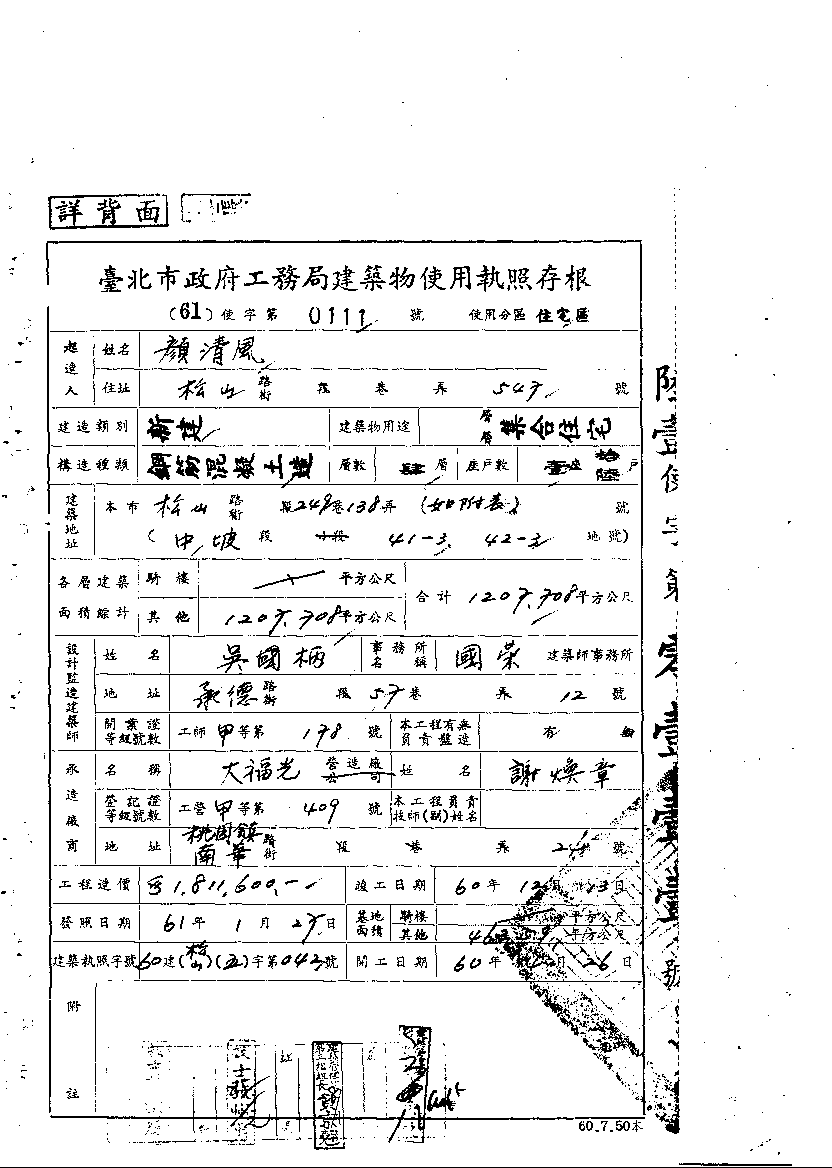 詳背面
臺北市政府工務局建築物使用執照存根
(61)使字第 0111 號 使用分區 住宅區
起造人 姓名 顏清風
住址 松山 路街 段 巷 弄 547 號
建造類別 新建 建築物用途 集合住宅
構造種類 鋼筋混凝土造 層數 肆 層 座戶數 壹座拾陸戶
建築地址 本市 松山 路街 段249巷138弄 (如附表) 號
(中坡 段 小段 41-3, 42-3 地號)
各層建築面積綜計 騎樓 平方公尺
其他 1207.708平方公尺 合計 1207.708平方公尺
設計監造建築師 姓名 吳國柄 事務所名稱 國榮 建築師事務所
地址 承德 路街 段 57 巷 弄 12 號
開業證等級號數 工師 甲 等第 178 號 本工程有無負責監造 有
承造廠商 名稱 大福光 營造廠公司 姓名 謝煥章
登記證等級號數 工營 甲 等第 409 號 本工程負責技師(副)姓名
地址 桃園鎮南華 路街 段 巷 弄 號
工程造價 1,811,600.- 竣工日期 60年 12月 13日
發照日期 61年 1月 27日 基地面積 騎樓 平方公尺
其他 平方公尺
建築執照字號 60建(松山)(五)字第042號 開工日期 60年 月 26日
附註
60.7.50本
陸壹使字第零壹壹壹號